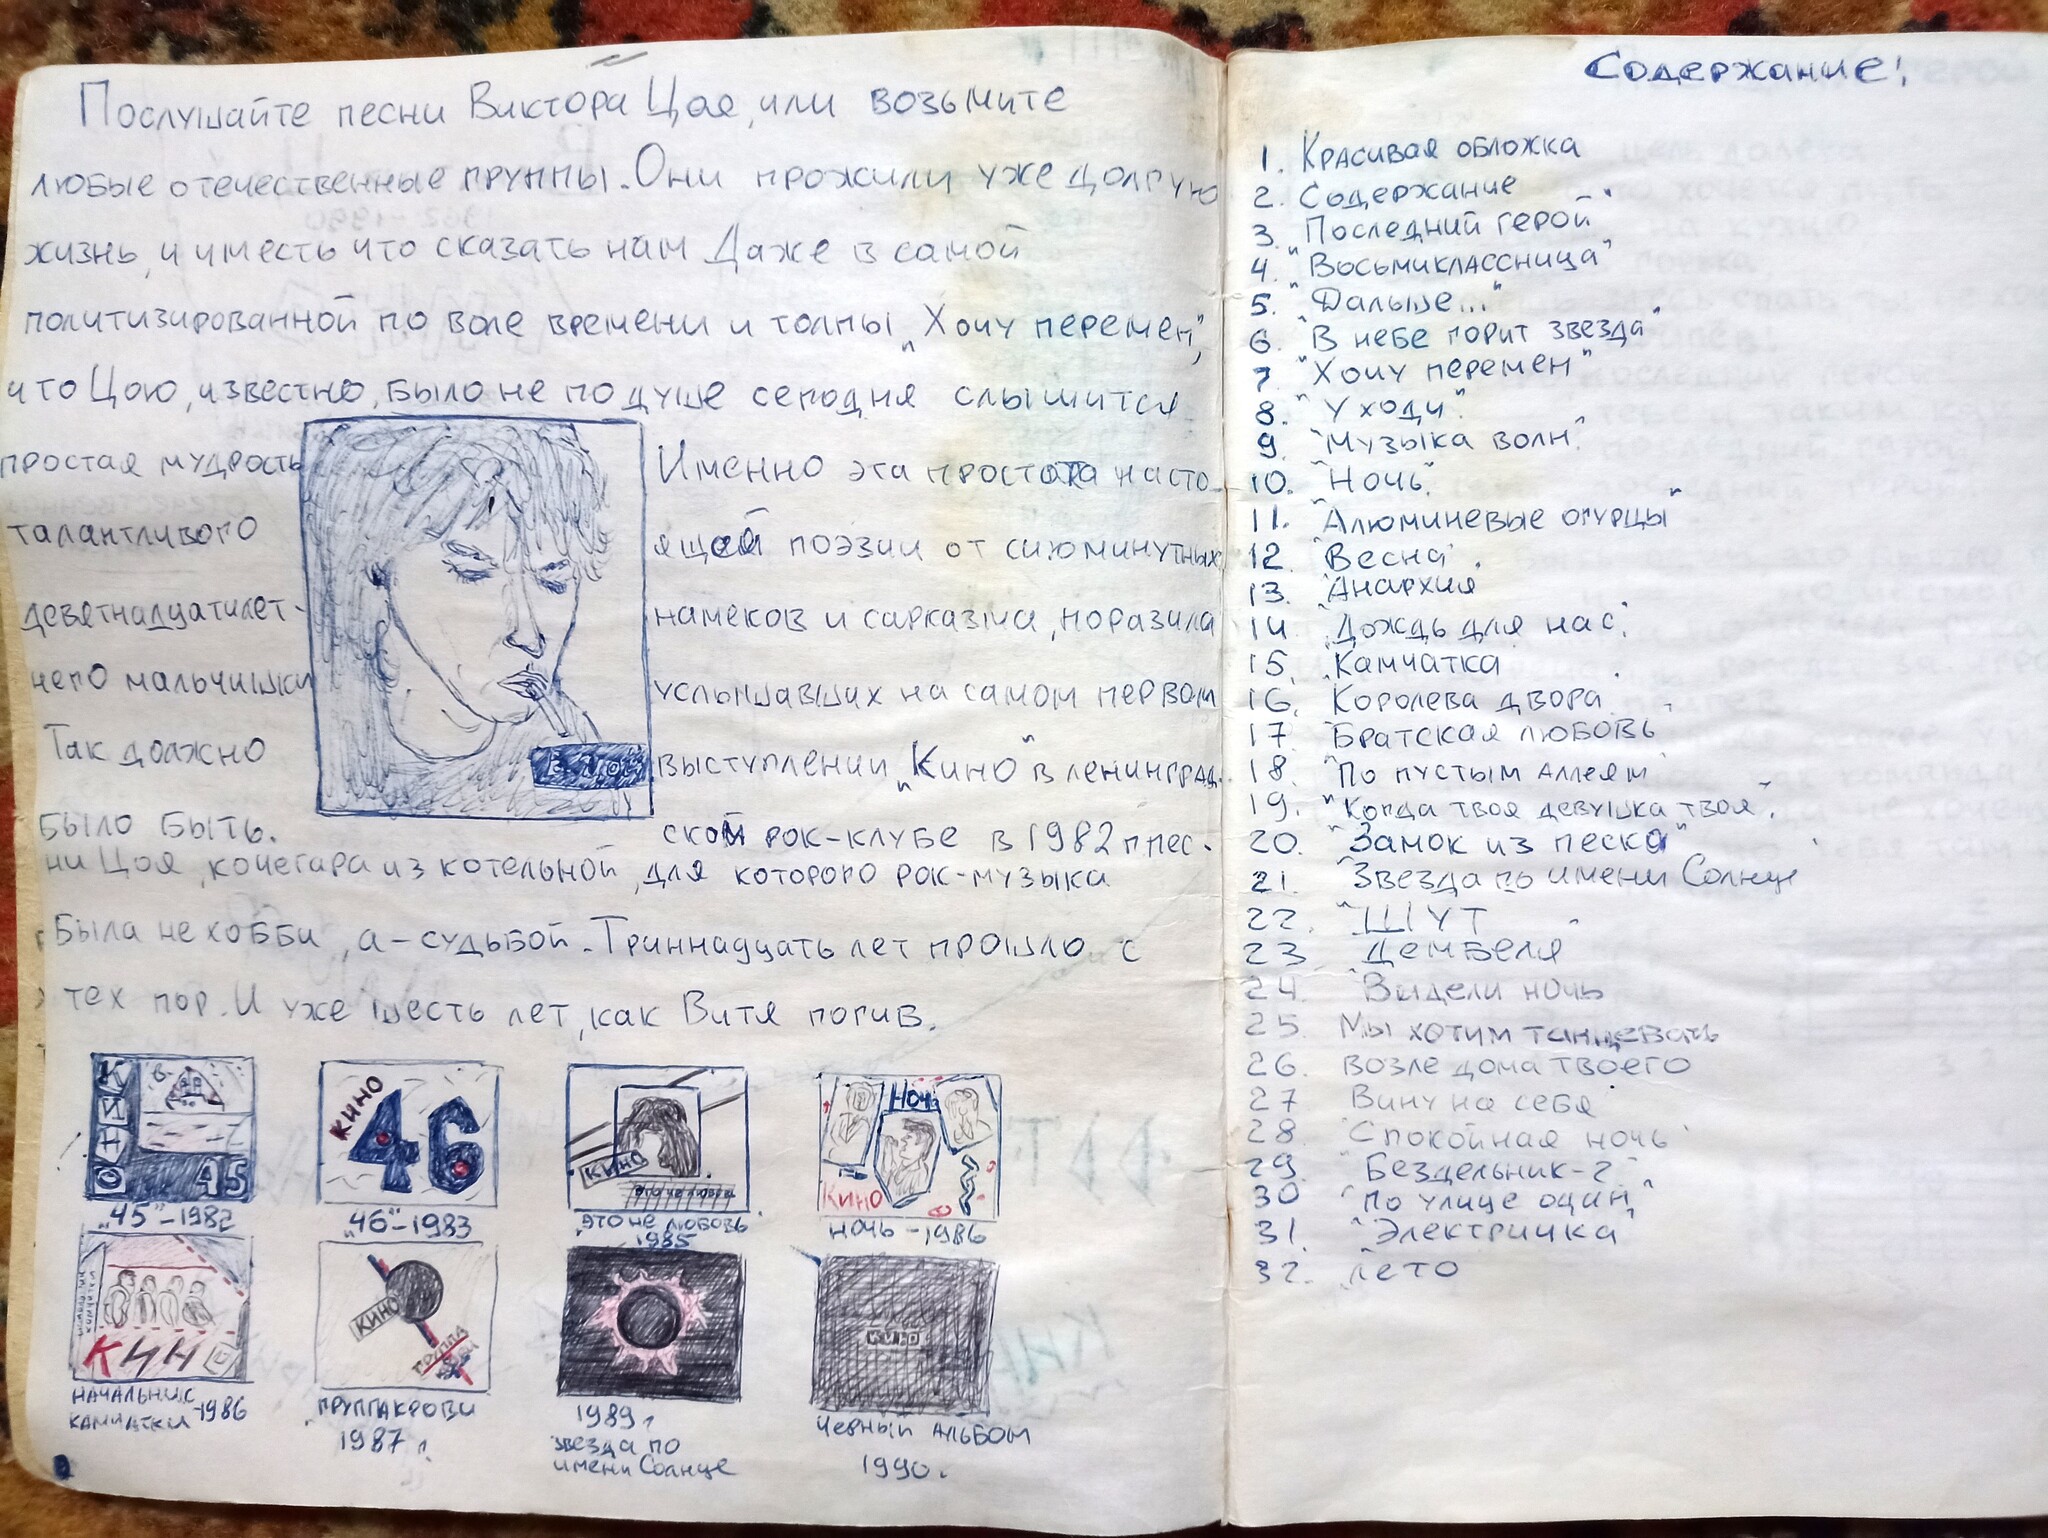 Послушайте песни Виктора Цоя, или возьмите
любые отечественные группы. Они прожили уже долгую
жизнь, и им есть что сказать нам Даже в самой
политизированной по воле времени и толпы „Хочу перемен",
что Цою, известно, было не по душе сегодня слышится
простая мудрость
талантливого
девятнадцатилет-
него мальчишки
Так должно
было быть.
В. Цой
Именно эта простота насто
ящей поэзии от сиюминутных
намеков и сарказма, поразила
услышавших на самом первом
выступлении „Кино" в ленинград.
ской рок-клубе в 1982 г пес-
ни Цоя, кочегара из котельной, для которого рок-музыка
была не хобби, а - судьбой. Триннадцать лет прошло с
тех пор. И уже шесть лет, как Витя погив.
КИНО
45
КИНО
46
КИНО
это не любовь
Ночь
КИНО
„45" - 1982
„46" - 1983
"это не любовь"
1985
ночь - 1986
начальник камчатки
КИНО
КИНО
группа крови
КИНО
начальник
камчатки - 1986
"группа крови
1987 г.
1989 г
звезда по
имени Солнце
черный альбом
1990 г.
Содержание:
1. Красивая обложка
2. Содержание
3. "Последний герой"
4. "Восьмиклассница"
5. "Дальше..."
6. "В небе горит звезда"
7. "Хочу перемен"
8. "Уходи"
9. "Музыка волн"
10. "Ночь"
11. "Алюминевые огурцы"
12. "Весна"
13. "Анархия
14. "Дождь для нас"
15. "Камчатка
16. "Королева двора
17. "Братская любовь
18. "По пустым аллеям
19. "Когда твоя девушка твоя"
20. "Замок из песка"
21. "Звезда по имени Солнце
22. "ШУТ"
23 Дембеля
24. "Видели ночь
25. Мы хотим танцевать
26. возле дома твоего
27 Вину на себя
28 "Спокойная ночь"
29. "Бездельник-2"
30 "по улице один"
31. "Электричка"
32. лето